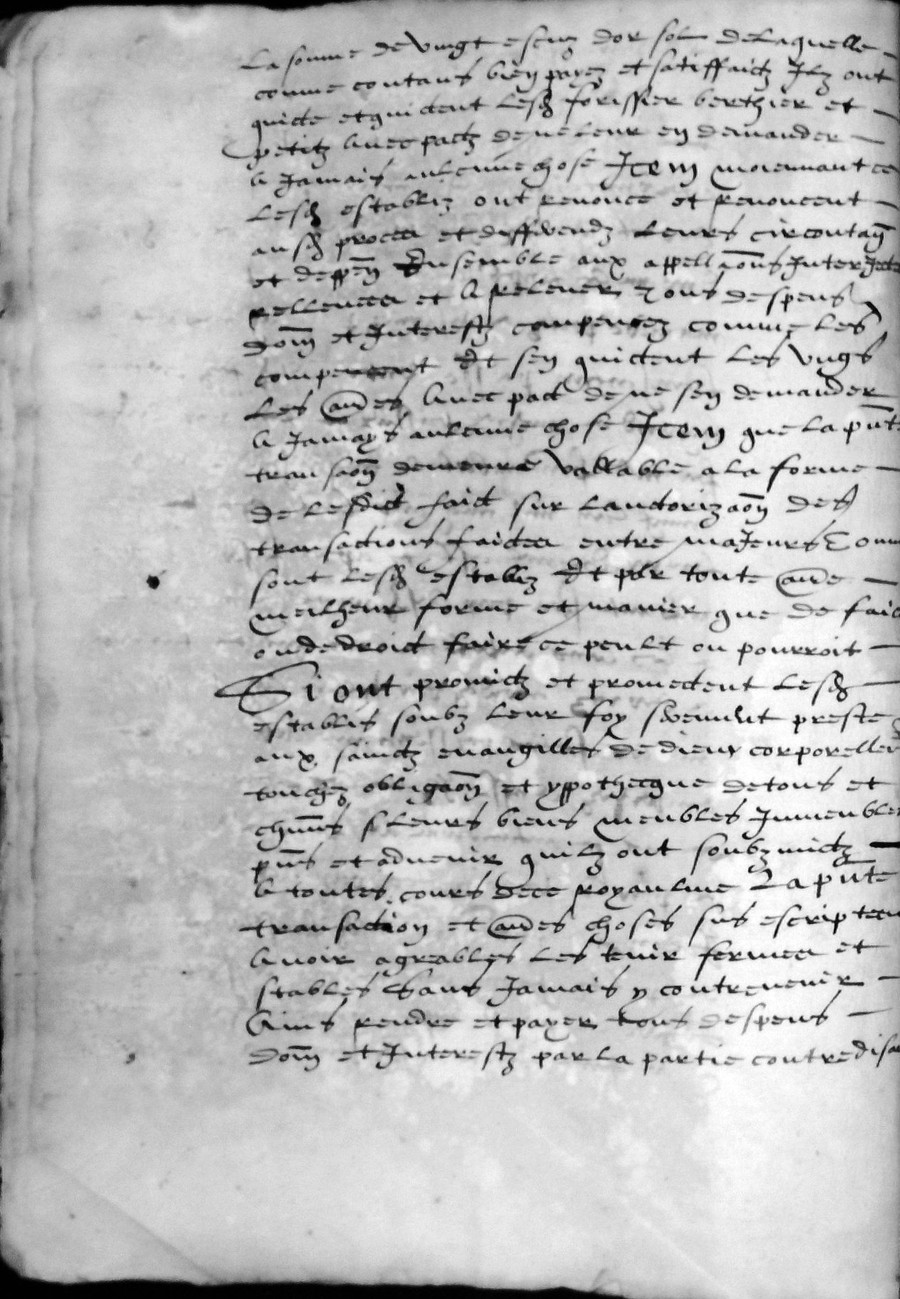 La somme de vingt escuz dor sol de laquelle
comme contans bien payez et satiffaictz Ilz ont
quicte et quictent lesd forissier berthier et
petitz avec pactz de ne leur en demander
a Jamais aulcune chose Item moiennant ce
Lesd establiz ont renonce et renoncent
ausd proces et differendz leurs circontan
et deppen Ensemble aux appellaons Interject
rellevees et a relever Tous despens
dom et Interestz compencez comme les
compencent Et sen quictent les ungs
Les aues avec pact de ne sen demander
a Jamays aulcune chose Item que la pnte
transaon demeure vallable a la forme
de ledict faict sur lauctorizaon des
transactions faictes entre maJeurs Comme
sont lesd establiz Et par toute aue
meilheur forme et manier que de faict
ou de droict faire ce peult ou pourroit
Si ont promictz et promectent lesd
establis soubz leur foy serement preste
aux sainctz evangilles de dieu corporellem
touchez obligaon et ypothecque de tous et
chuns leurs biens meubles Immeubles
pns et advenir quilz ont soubzmictz
a toutes cours de ce royaulme La pnte
transaction et aues choses sus escriptes
avoir agreables les tenir fermes et
stables Sans Jamais y contrevenir
Ains rendre et payer tous despens
dom et Interestz par la partie contredisa